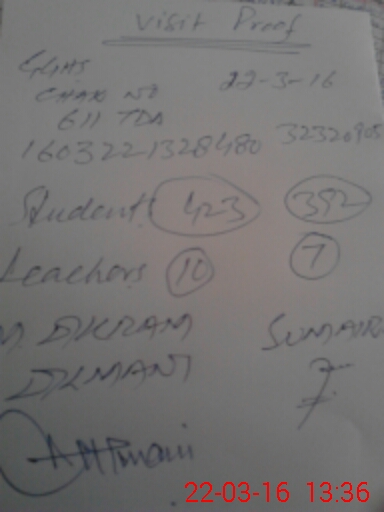 Visit Proof
GGHS 22-3-16
CHAK NO
611 TDA
1603221328480 32320905
Student 423 392
Teachers 10 7
M. IKRAM SUMAIR
22-03-16 13:36